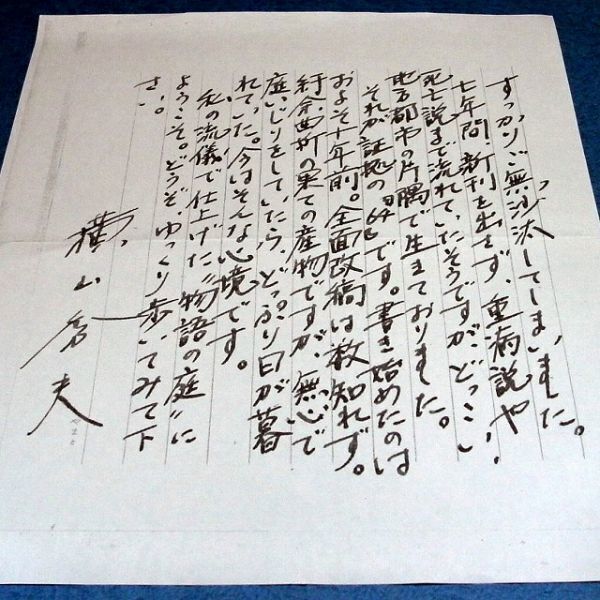 すっかりご無沙汰してしまいました。
七年間、新刊を出せず、重病説や、
死亡説まで流れていたそうですが、どっこい
地方都市の片隅で生きておりました。
それが証拠の『64』です。書き始めたのは
およそ十年前。全面改稿は数知れず。
紆余曲折の果ての産物ですが、無心で
庭いじりをしていたら、どっぷり日が暮
れていた。今はそんな心境です。
私の流儀で仕上げた〝物語の庭〟に
ようこそ。どうぞ、ゆっくり歩いてみて下
さい。
横山秀夫